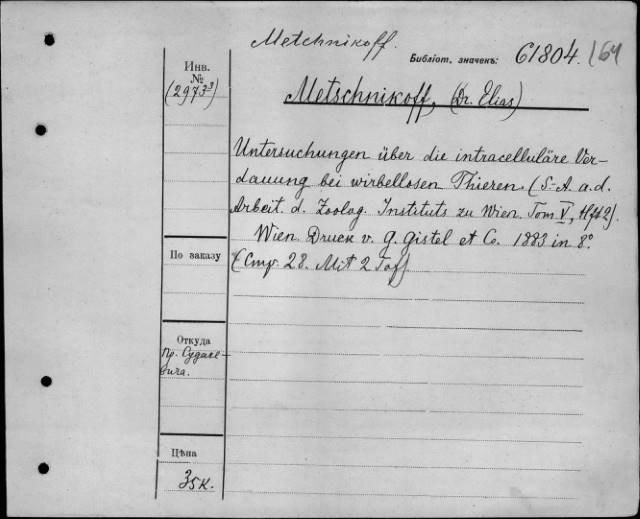 Metchnikoff.
Библіот. значекъ: 61804. /64
Инв.
№
(2973³)
Metschnikoff, (Dr. Elias)
Untersuchungen über die intracelluläre Ver-
dauung bei wirbellosen Thieren (S.-A. a. d.
Arbeit. d. Zoolog. Instituts zu Wien. Tom V, Hft 2).
Wien. Druck v. G. Gistel et Co. 1883 in 8°.
(Стр. 28. Mit 2 Taf)
По заказу
Откуда
Пр. Судаке-
вича.
Цѣна
35к.